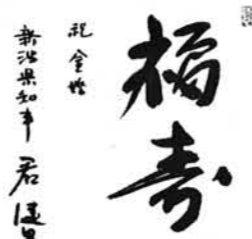 福寿
祝金婚
新潟県知事 君